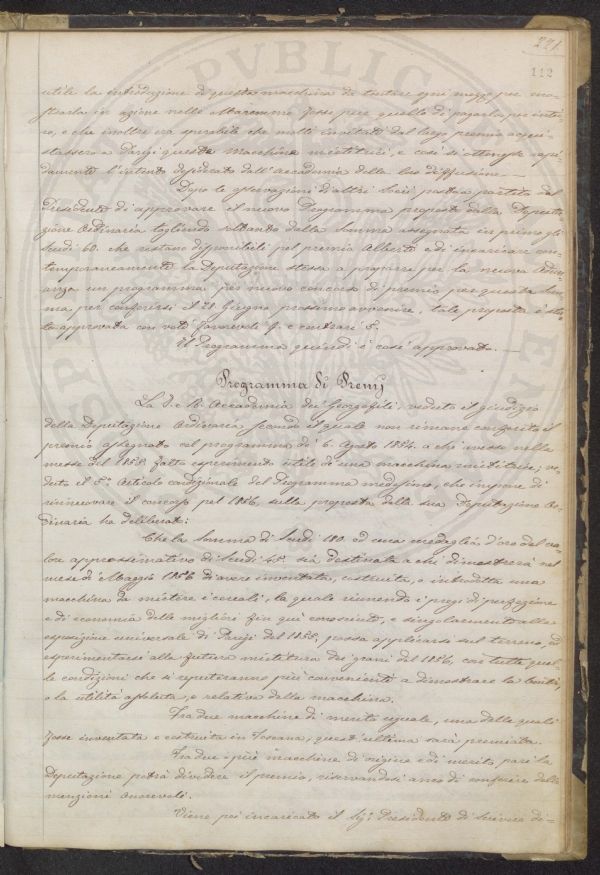 221.
112
utile la introduzione di questa macchina di tentare ogni mezzo per mo=
strarla in azione nelle Maremme fosse pure quello di pagarla per inti=
ro, e che inoltre era sperabile che molti invitati dal largo premio acqui=
stassero a Parigi queste Macchine mietitrici, e così si ottenga rapi=
damente l'intento desiderato dall'Accademia della loro diffusione. —
Dopo le osservazioni di altri Socii posto a partito dal
Presidente di approvare il nuovo Programma proposto dalla Deputa
zione Ordinaria togliendo secondo della Somma assegnata in primo gli
Scudi 60. che restano disponibili pel premio Alberti e di incaricare con=
temporaneamente la Deputazione stessa a proporre per la nuova Adu=
nanza un programma per nuovo concorso di premio per questa Som
ma, per conferirsi il 28 Giugno prossimo avvenire, tale proposta è sta=
ta approvata con voti favorevoli 9. e contrari 5.
Il Programma quindi è così approvato. —
Programma di Premj
La I. e R. Accademia dei Georgofili, veduto il giudizio
della Deputazione Ordinaria, secondo il quale non rimane conferito il
premio assegnato col programma di 6. Agosto 1854. a chi avesse nella
messe del 1855. fatto esperimento utile di una macchina mietitrice; ve=
duto il 5° Articolo condizionale del Programma medesimo, che impone di
rinnuovare il concorso pel 1856, sulla proposta della sua Deputazione Or=
dinaria ha deliberato:
Che la Somma di Scudi 180. ed una medaglia d'oro del va=
lore approssimativo di Scudi 45. sia destinata a chi dimostrerà nel
mese di Maggio 1856 di avere inventata, costruita, o introdotta una
macchina da mietere i cereali, la quale riunendo i pregi di perfezione
e di economia delle migliori fin quì conosciute, e singolarmente alla
esposizione universale di Parigi del 1855, possa applicarsi sul terreno, ed
esperimentarsi alla futura mietitura dei grani del 1856, con tutte quel=
le condizioni che si reputeranno più convenienti a dimostrare la bontà,
e la utilità assoluta, e relativa della macchina.
Fra due macchine di merito uguale, una delle quali
fosse inventata e costruita in Toscana, quest'ultima sarà premiata.
Fra due o più macchine di origine e di merito pari la
Deputazione potrà dividere il premio, riservandosi anco di conferire delle
menzioni onorevoli.
Viene poi incaricato il Sig.r Presidente di scrivere di=